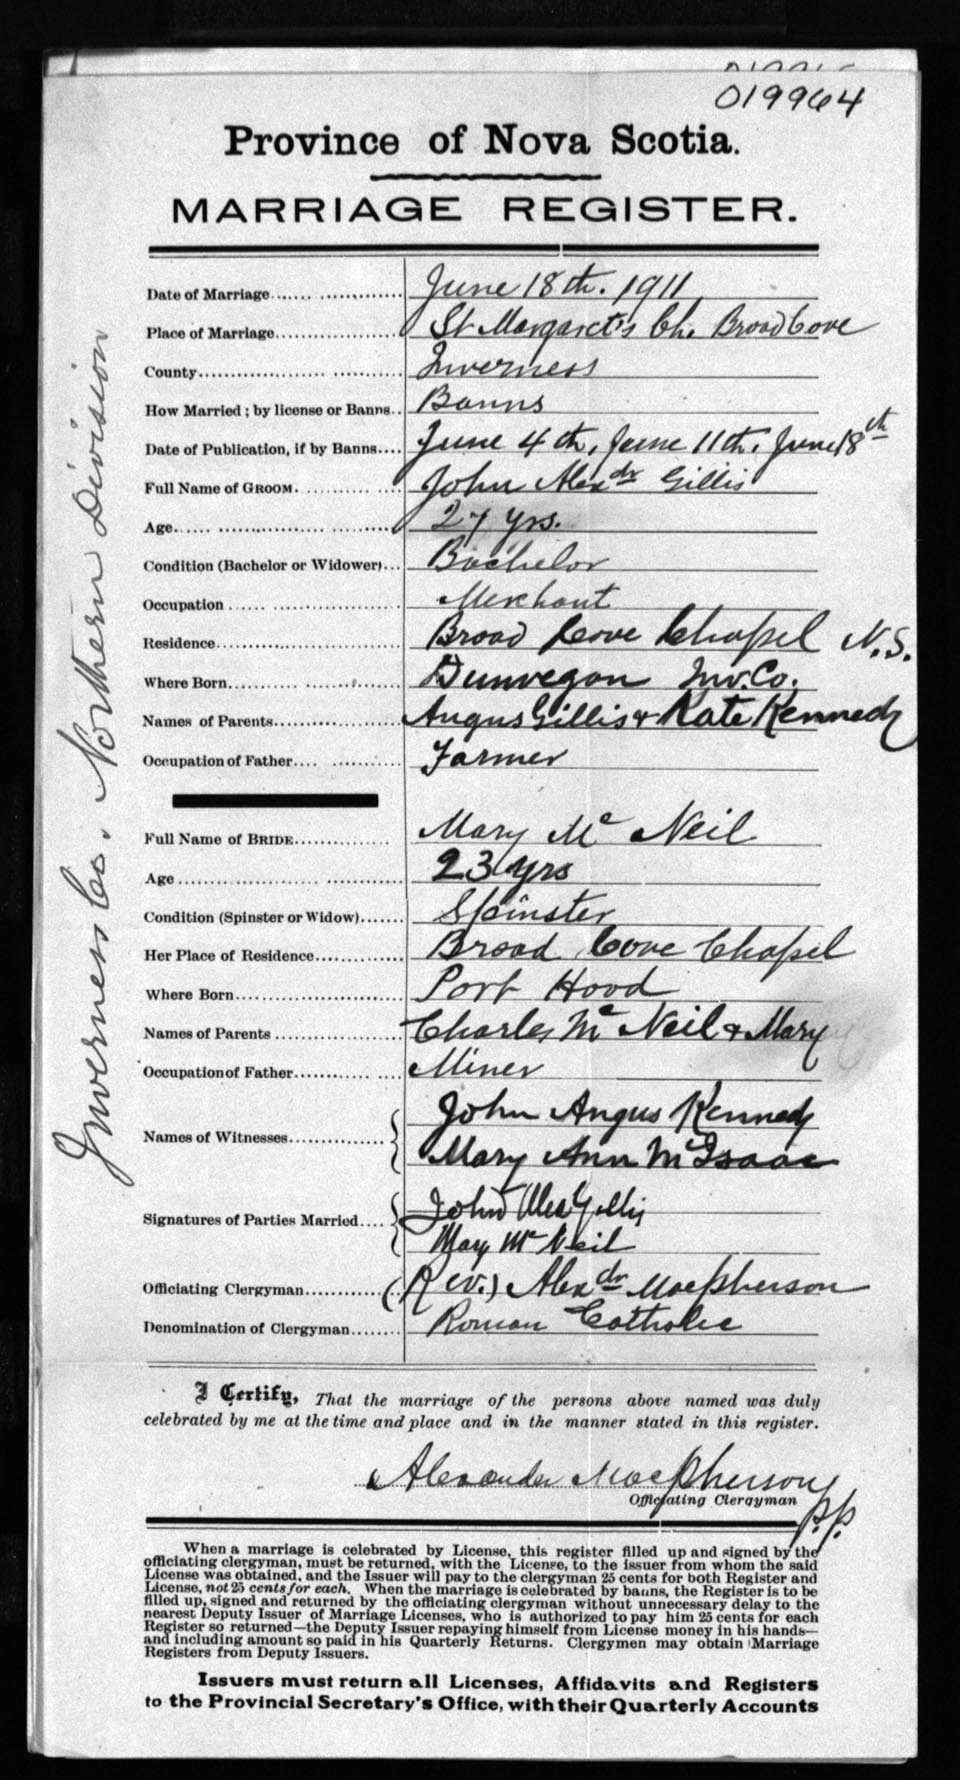 019964
Province of Nova Scotia.
MARRIAGE REGISTER.
Inverness Co. Northern Division
Date of Marriage........................ June 18th. 1911
Place of Marriage...................... St Margaret's Ch. Broad Cove
County.................................. Inverness
How Married ; by license or Banns.. Banns
Date of Publication, if by Banns.... June 4th, June 11th, June 18th
Full Name of GROOM................. John Alexdr Gillis
Age..................................... 27 yrs.
Condition (Bachelor or Widower)... Bachelor
Occupation ............................ Merchant
Residence............................... Broad Cove Chapel N.S.
Where Born............................. Dunvegan Inv. Co.
Names of Parents...................... Angus Gillis & Kate Kennedy
Occupation of Father................. Farmer
Full Name of BRIDE................... Mary Mc Neil
Age..................................... 23 yrs
Condition (Spinster or Widow)...... Spinster
Her Place of Residence............... Broad Cove Chapel
Where Born............................. Port Hood
Names of Parents ..................... Charles Mc Neil & Mary
Occupation of Father................. Miner
Names of Witnesses................... John Angus Kennedy
Mary Ann McIsaac
Signatures of Parties Married.... John Alex Gillis
Mary Mc Neil
Officiating Clergyman................ (Rev.) Alexdr MacPherson
Denomination of Clergyman........ Roman Catholic
I Certify, That the marriage of the persons above named was duly
celebrated by me at the time and place and in the manner stated in this register.
Alexander MacPherson
Officiating Clergyman
P.P.
When a marriage is celebrated by License, this register filled up and signed by the
officiating clergyman, must be returned, with the License, to the issuer from whom the said
License was obtained, and the Issuer will pay to the clergyman 25 cents for both Register and
License, not 25 cents for each. When the marriage is celebrated by banns, the Register is to be
filled up, signed and returned by the officiating clergyman without unnecessary delay to the
nearest Deputy Issuer of Marriage Licenses, who is authorized to pay him 25 cents for each
Register so returned—the Deputy Issuer repaying himself from License money in his hands—
and including amount so paid in his Quarterly Returns. Clergymen may obtain Marriage
Registers from Deputy Issuers.
Issuers must return all Licenses, Affidavits and Registers
to the Provincial Secretary's Office, with their Quarterly Accounts